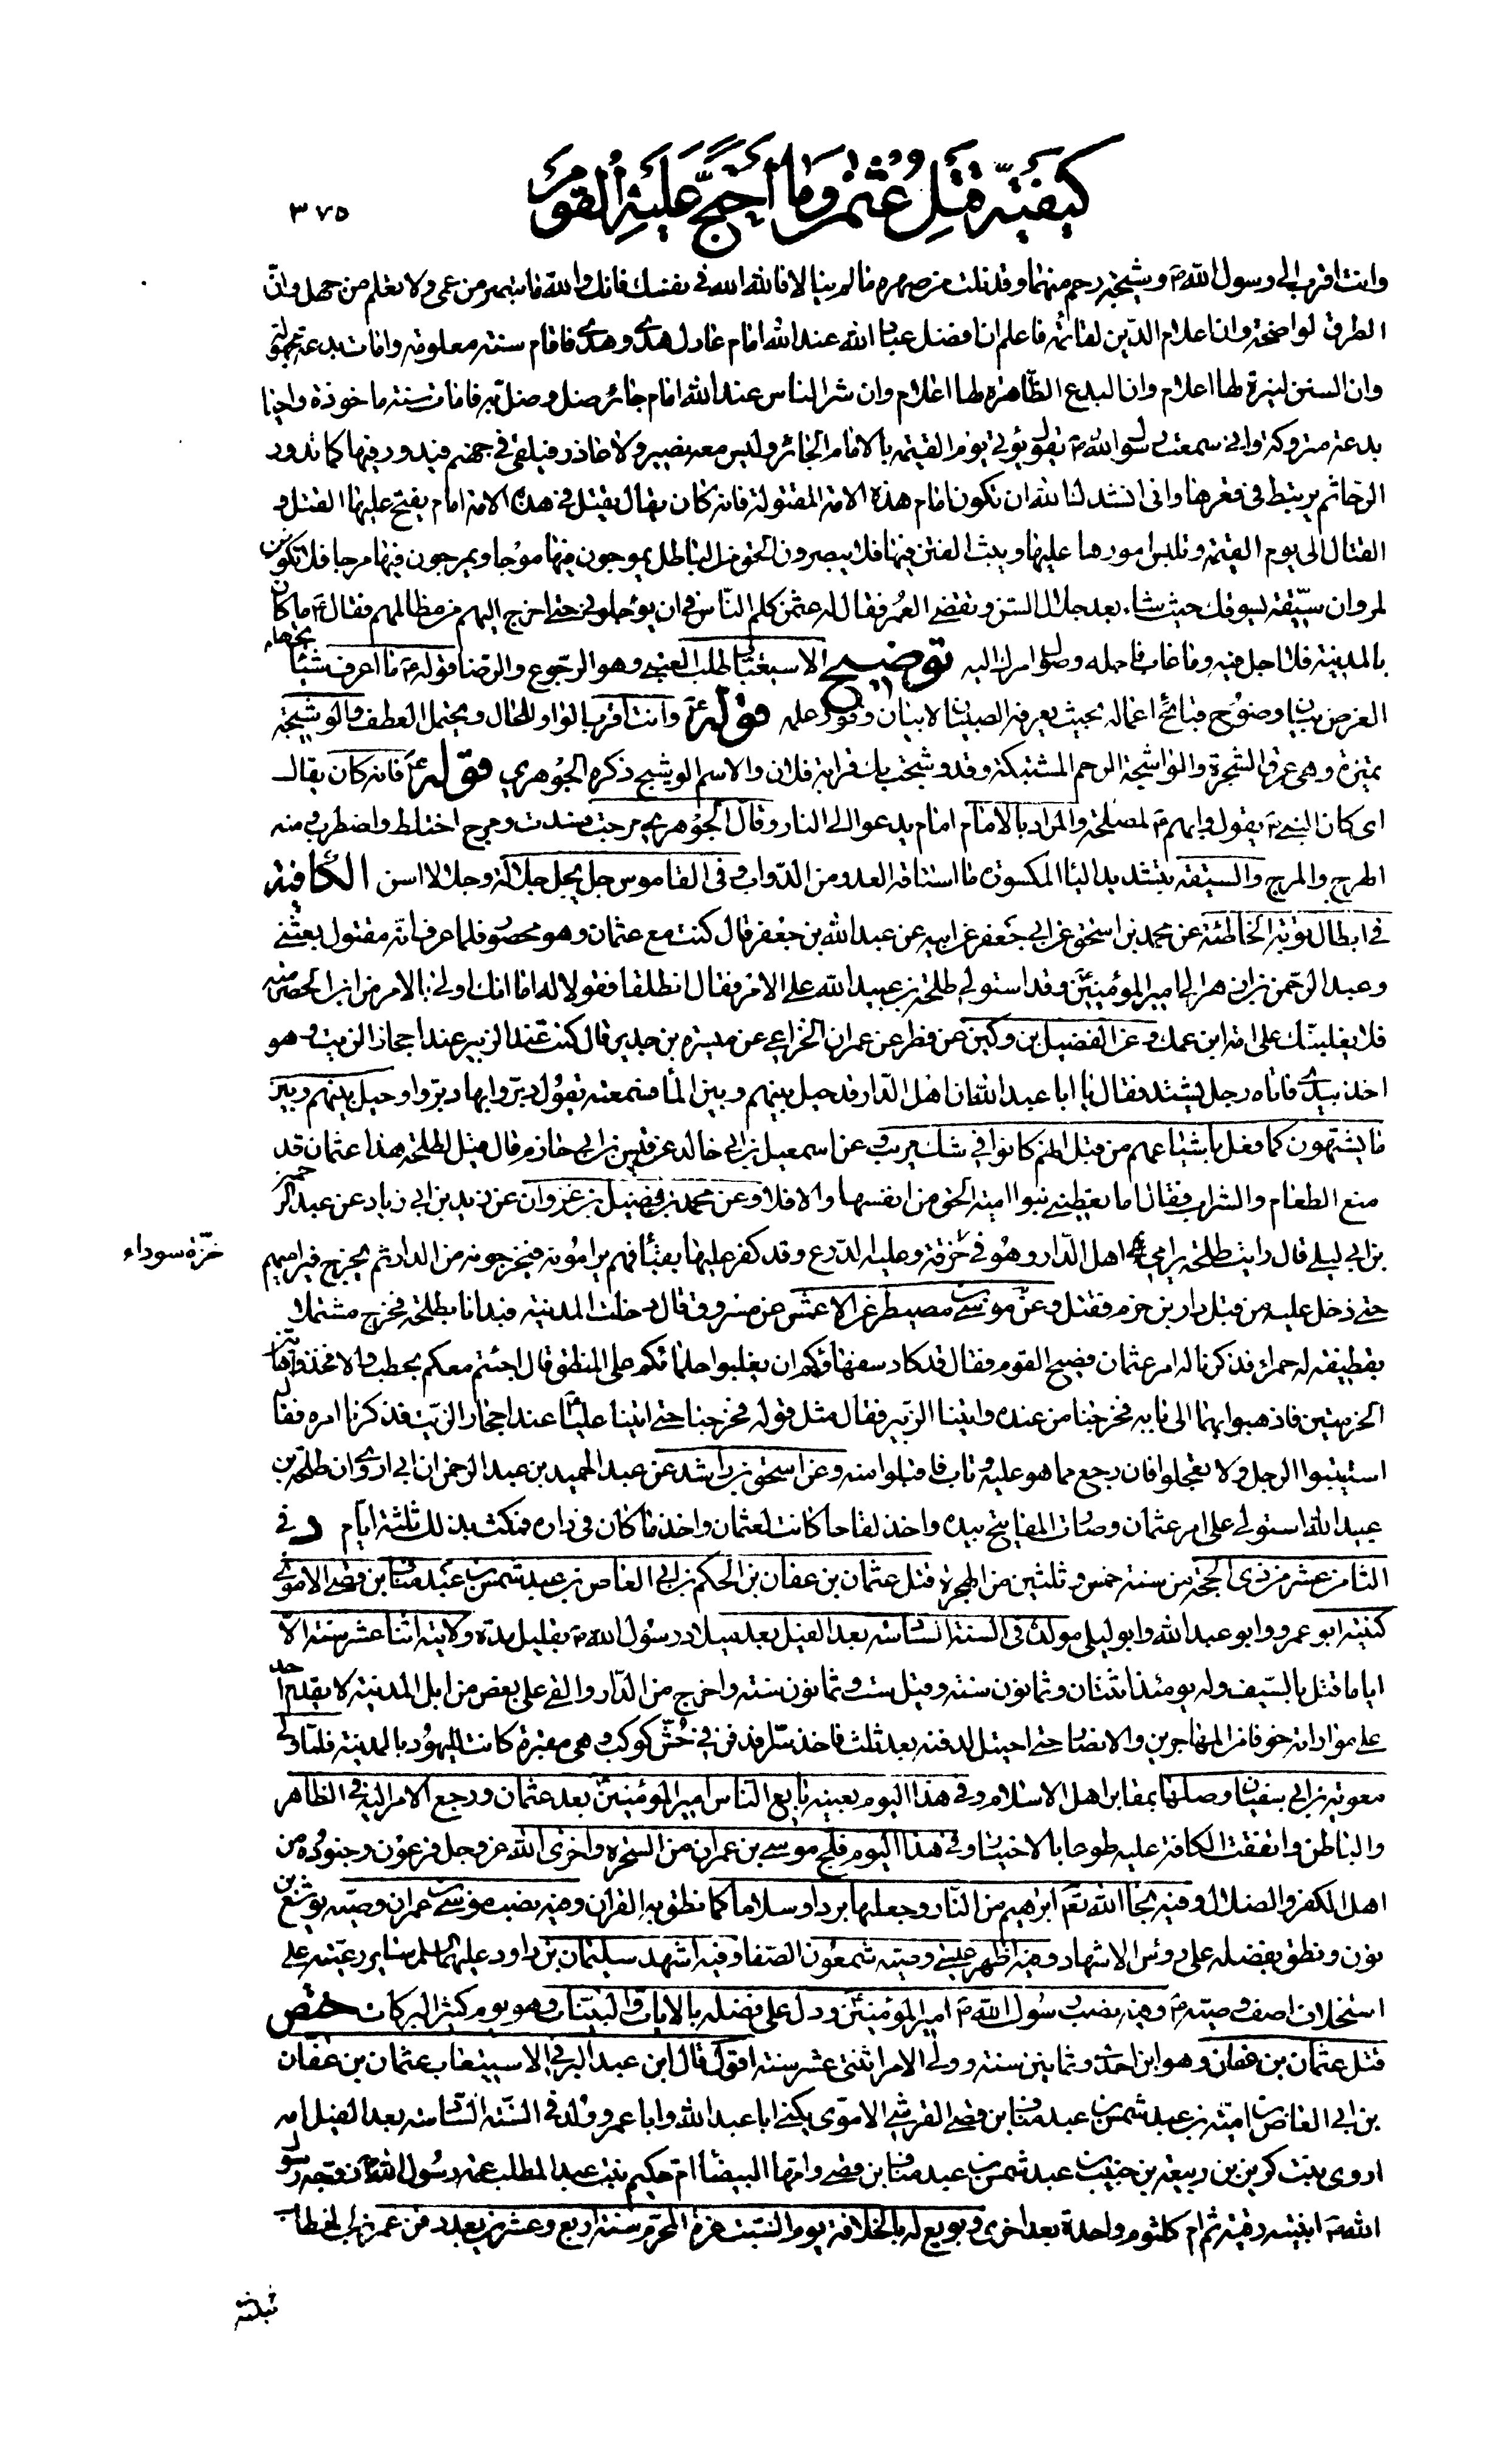 كيفيّة قتل عثمن وما احتجّ عليه القوم
٣٧٥
وانت اقرب الى رسول الله ص وشيجة رحم منهما وقد نلت من صهره ما لم ينالا فالله الله في نفسك فانك والله ما تبصر من عمى ولا تعلم من جهل وانّ
الطرق لواضحة وان اعلام الدّين لقائمة فاعلم ان افضل عباد الله عند الله امام عادل هدى وهدى فاقام سنة معلومة وامات بدعة مجهولة
وان السنن لنيرة لها اعلام وان البدع الظّاهرة لها اعلام وان شر الناس عند الله امام جائر ضل وضل به فامات سنة ماخوذة واحيا
بدعة متروكة واني سمعت رسول الله ص يقول يؤتى يوم القيمة بالامام الجائر وليس معه نصير ولا عاذر فيلقى في جهنم فيدور فيها كما تدور
الرحا ثم يرتبط في قعرها واني انشدك الله ان تكون امام هذه الامة المقتول فانه كان يقال يقتل في هذه الامة امام يفتح عليها القتل و
القتال الى يوم القيمة ويلبس امورها عليها ويبث الفتن فيها فلا يبصرون الحق من الباطل يموجون فيها موجا ويمرجون فيها مرجا فلا تكونن
لمروان سيّقة يسوقك حيث شاء بعد جلال السن وتقضي العمر فقال له عثمن كلم النّاس في ان يؤجلوني حتى اخرج اليهم من مظالمهم فقال ع ما كان
بالمدينة فلا اجل فيه وما غاب فاجله وصول امرك اليه توضيح الاستعتاب طلب العتبى وهو الرّجوع والرضا قوله ع ما اعرف شيئا تجهله
الغرض بيان وضوح قبائح اعماله بحيث يعرفه الصبيان لا بيان وفور علمه قوله ع وانت اقرب الواو للحال ويحتمل العطف والوشيجة
بتيزة وهي عرق الشجرة والواشجة الرحم المشتبكة وقد وشجت بك قرابة فلان والاسم الوشيج ذكره الجوهري قوله ع فانه كان يقال
اى كان النبي ص يقول وابهم ع لمصلحة والمراد بالامام امام يدعو الى النار وقال الجوهري مرجت فسدت ومرج اختلط واضطرب منه
الهرج والمرج والسيّقة بتشديد الياء المكسورة ما استاقه العدو من الدّواب وفي القاموس جل يجل جلالة وجلالا اسن الكافية
في ابطال توبة الخاطئة عن محمد بن اسحق عن ابي جعفر عن ابيه عن عبد الله بن جعفر قال كنت مع عثمان وهو محصور فلما عرف انّه مقتول بعثني
وعبد الرّحمن بن ازهر الى امير المؤمنين ع وقد استولى طلحة بن عبيد الله على الامر فقال انطلقا فقولا له اما انك اولى بالامر من ابن الحضرمية
فلا يغلبنّك على امة ابن عمك وعن الفضيل بن وكين عن فطر عن عمران الخزاعي عن ميسرة بن جدير قال كنت عند الزبير عند احجار الزيت وهو
اخذ بيدي فاتاه رجل يشتد فقال يا ابا عبد الله ان اهل الدّار قد حيل بينهم وبين الماء فسمعته يقول دبّروا بها دبّروا وحيل بينهم وبين
ما يشتهون كما فعل باشياعهم من قبل انهم كانوا في شك مريب وعن اسمعيل بن ابي خالد عن قيس بن ابي حازم قال قيل لطلحة هذا عثمان قد
منع الطعام والشراب فقال اما يعطيني بنو امية الحق من انفسها والا فلا وعن محمد بن فضيل بن غزوان عن زيد بن ابي زياد عن عبد الرحمن
بن ابي ليلى قال رايت طلحة يرامي اهل الدّار وهو في خزقة وعليه الدّرع وقد كفر عليها بقباء فهم يرامونه فيخرجونه من الدار ثم يخرج فيراميهم
خزّة سوداء
حتى دخل عليه من قبل دار بن حزم فقتل وعن موسى مصيطر عن الاعمش عن مسروق قال دخلت المدينة فبدانا بطلحة فخرج مشتملا
بقطيفة له حمراء فذكرنا له امر عثمان فصيح القوم فقال قد كاد سفهاؤكم ان يغلبوا حلمائكم على المنطق قال اجئتم معكم بحطب والا فخذوا هاتين
الحزمتين فاذهبوا بهما الى بابه فخرجنا من عنده واتينا الزبير فقال مثل قوله فخرجنا حتى اتينا عليّا ع عند احجار الزيت فذكرنا امره فقال
استتيبوا الرجل ولا تعجلوا فان رجع مما هو عليه وتاب فاقبلوا منه وعن اسحق بن راشد عن عبد الحميد بن عبد الرحمن ان ابي اروى ان طلحة بن
عبيد الله استولى على امر عثمان وصارت المفاتيح بيده واخذ لقاحا كانت لعثمان واخذ ما كان في داره فمكث بذلك ثلثة ايّام د في
الثامن عشر من ذي الحجة من سنة خمس وثلثين من الهجرة قتل عثمان بن عفان بن الحكم بن ابي العاص بن عبد شمس بن عبد مناف بن قصي الاموي
كنيته ابو عمرو وابو عبد الله وابو ليلى مولده في السنة السادسة بعد الفيل بعد ميلاد رسول الله ص بقليل مدة ولايته اثنا عشر سنة الّا
اياما قتل بالسّيف وله يومئذ اثنتان وثمانون سنة وقيل ست وثمانون سنة واخرج من الدّار والقي على بعض مزابل المدينة لا يقدم احد
على مواراته خوفا من المهاجرين والانصار حتى احتيل لدفنه بعد ثلث فاخذ سرّا فدفن في حشّ كوكب وهي مقبرة كانت لليهود بالمدينة فلمّا ولي
معوية بن ابي سفيان وصلها بمقابر اهل الاسلام وفي هذا اليوم بعينه بايع الناس امير المؤمنين ع بعد عثمان ورجع الامر اليه في الظاهر
والباطن واتفقت الكافة عليه طوعا بالاختيار وفي هذا اليوم فلج موسى بن عمران من السّحرة واخزى الله عز وجل فرعون وجنوده من
اهل الكفر والضلال وفيه نجا الله تع ابرهيم من النّار وجعلها بردا وسلاما كما نطق به القران وفيه نصب موسى بن عمران وصيّه يوشع بن
نون ونطق بفضله على رؤس الاشهاد وفيه اظهر عيسى وصيّه شمعون الصّفا وفيه اشهد سليمان بن داود عليهما السلم ساير رعيّته على
استخلاف اصف وصيّه ع وفيه نصب رسول الله ص امير المؤمنين ع ودل على فضله بالايات والبيّنات وهو يوم كثير البركات ختص
قتل عثمان بن عفان وهو ابن احدى وثمانين سنة وولي الامر اثنتي عشر سنة اقول قال ابن عبد البر في الاستيعاب عثمان بن عفّان
بن ابي العاص بن اميّة بن عبد شمس بن عبد مناف بن قصي القرشي الاموّي يكنى ابا عبد الله وابا عمرو ولد في السّنة السّادسة بعد الفيل امه
اروى بنت كريز بن ربيعة بن حبيب بن عبد شمس بن عبد مناف بن قصي وامّها البيضاء امّ حكيم بنت عبد المطلب عمة رسول الله ص زوّجه رسول
الله ص ابنتيه رقية ثم ام كلثوم واحدة بعد اخرى وبويع له بالخلافة يوم السّبت غرة المحرّم سنة اربع وعشرين بعد دفن عمر بن الخطاب
بثلثة